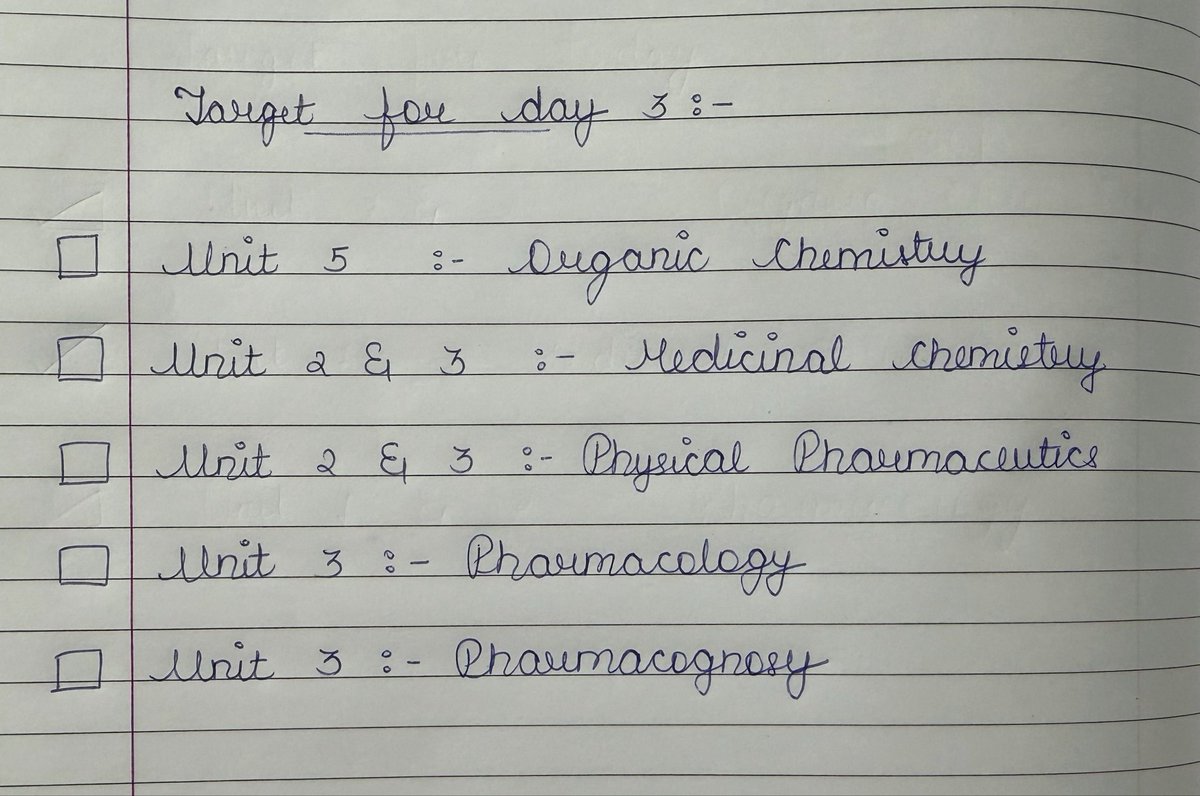 Target for day 3 :-
Unit 5 :- Organic Chemistry
Unit 2 & 3 :- Medicinal Chemistry
Unit 2 & 3 :- Physical Pharmaceutics
Unit 3 :- Pharmacology
Unit 3 :- Pharmacognosy